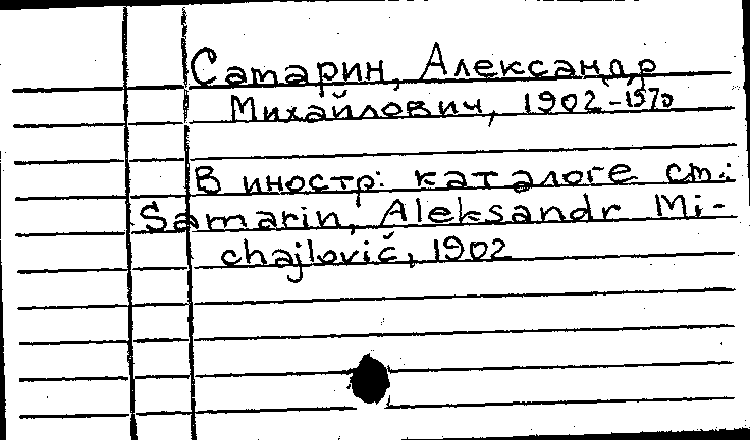 Самарин, Александр
Михайлович, 1902-1970
В иностр. каталоге см.:
Samarin, Aleksandr Mi-
chajlovič, 1902